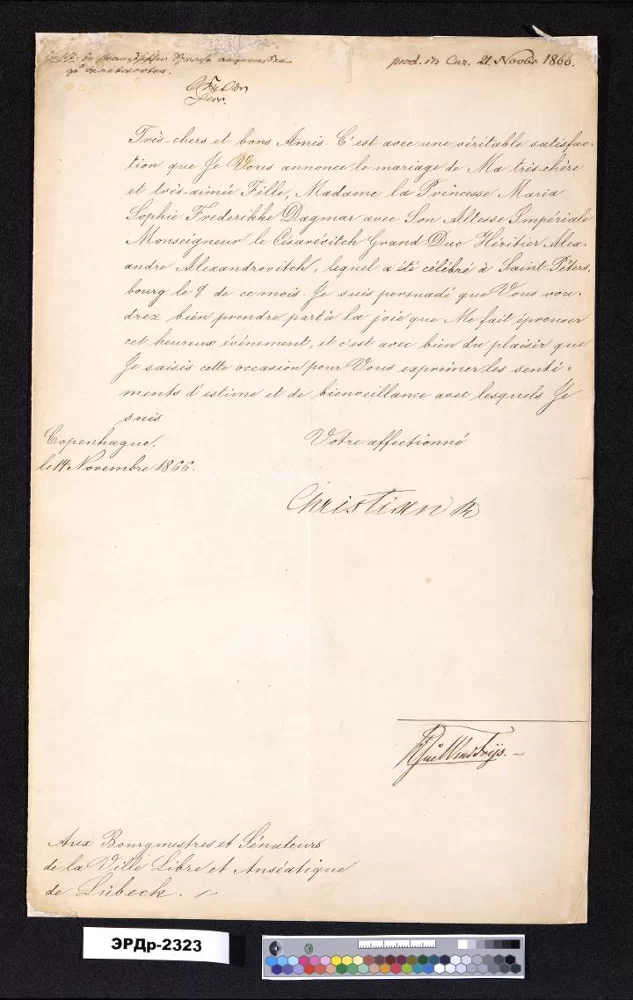 prod. in Cur. 21 Novbr 1866.
Très-chers et bons Amis. C'est avec une véritable satisfac-
tion que Je Vous annonce le mariage de Ma très-chère
et très-aimée Fille, Madame la Princesse Maria
Sophie Frederikke Dagmar avec Son Altesse Impériale
Monseigneur le Césarévitch Grand-Duc Héritier Alex-
andre Alexandrovitch, lequel a été célébré à Saint-Péters-
bourg le 9 de ce mois. Je suis persuadé que Vous vou-
drez bien prendre part à la joie que Me fait éprouver
cet heureux événement, et c'est avec bien du plaisir que
Je saisis cette occasion pour Vous exprimer les senti-
ments d'estime et de bienveillance avec lesquels Je
suis
Votre affectionné
Copenhague,
le 14 Novembre 1866.
Christian R
Aux Bourgmestres et Sénateurs
de la Ville Libre et Anséatique
de Lübeck.
ЭРДр-2323